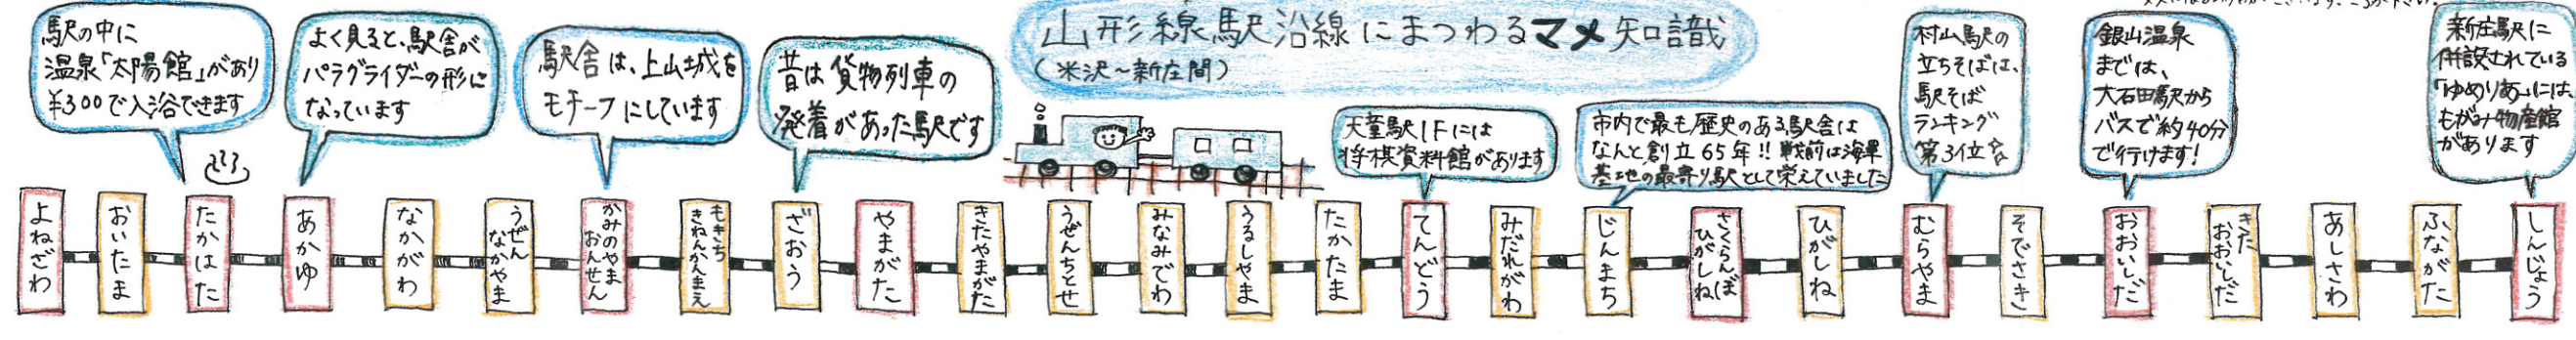 山形線駅沿線にまつわるマメ知識
(米沢~新庄間)
駅の中に
温泉「太陽館」があり
¥300で入浴できます
よく見ると、駅舎が
パラグライダーの形に
なっています
駅舎は、上山城を
モチーフにしています
昔は貨物列車の
発着があった駅です
天童駅1Fには
将棋資料館があります
市内で最も歴史のある駅舎は
なんと創立65年!!戦前は海軍
基地の最寄り駅として栄えていました
村山駅の
立ちそばは、
駅そば
ランキング
第3位
銀山温泉
までは、
大石田駅から
バスで約40分
で行けます!
新庄駅に
併設されている
「ゆめりあ」には、
もがみ物産館
があります
よねざわ
おいたま
たかはた
あかゆ
なかがわ
うぜん
なかやま
かみのやま
おんせん
もきち
きねんかんまえ
ざおう
やまがた
きたやまがた
うぜんちとせ
みなみでわ
うるしやま
たかたま
てんどう
みだれがわ
じんまち
さくらんぼ
ひがしね
ひがしね
むらやま
そでさき
おおいしだ
きた
おおいしだ
あしさわ
ふながた
しんじょう